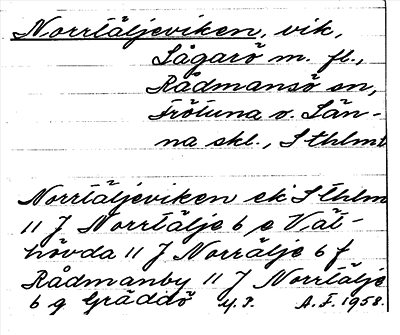 Norrtäljeviken, vik,
Lågarö m. fl.,
Rådmansö sn,
Frötuna o. Län-
na skl., Sthlms
Norrtäljeviken ek Sthlm
11 J Norrtälje 6 e Vät-
hövda 11 J Norrälje 6 f
Rådmanby 11 J Norrtälje
6 g Gräddö A. I. 1958.